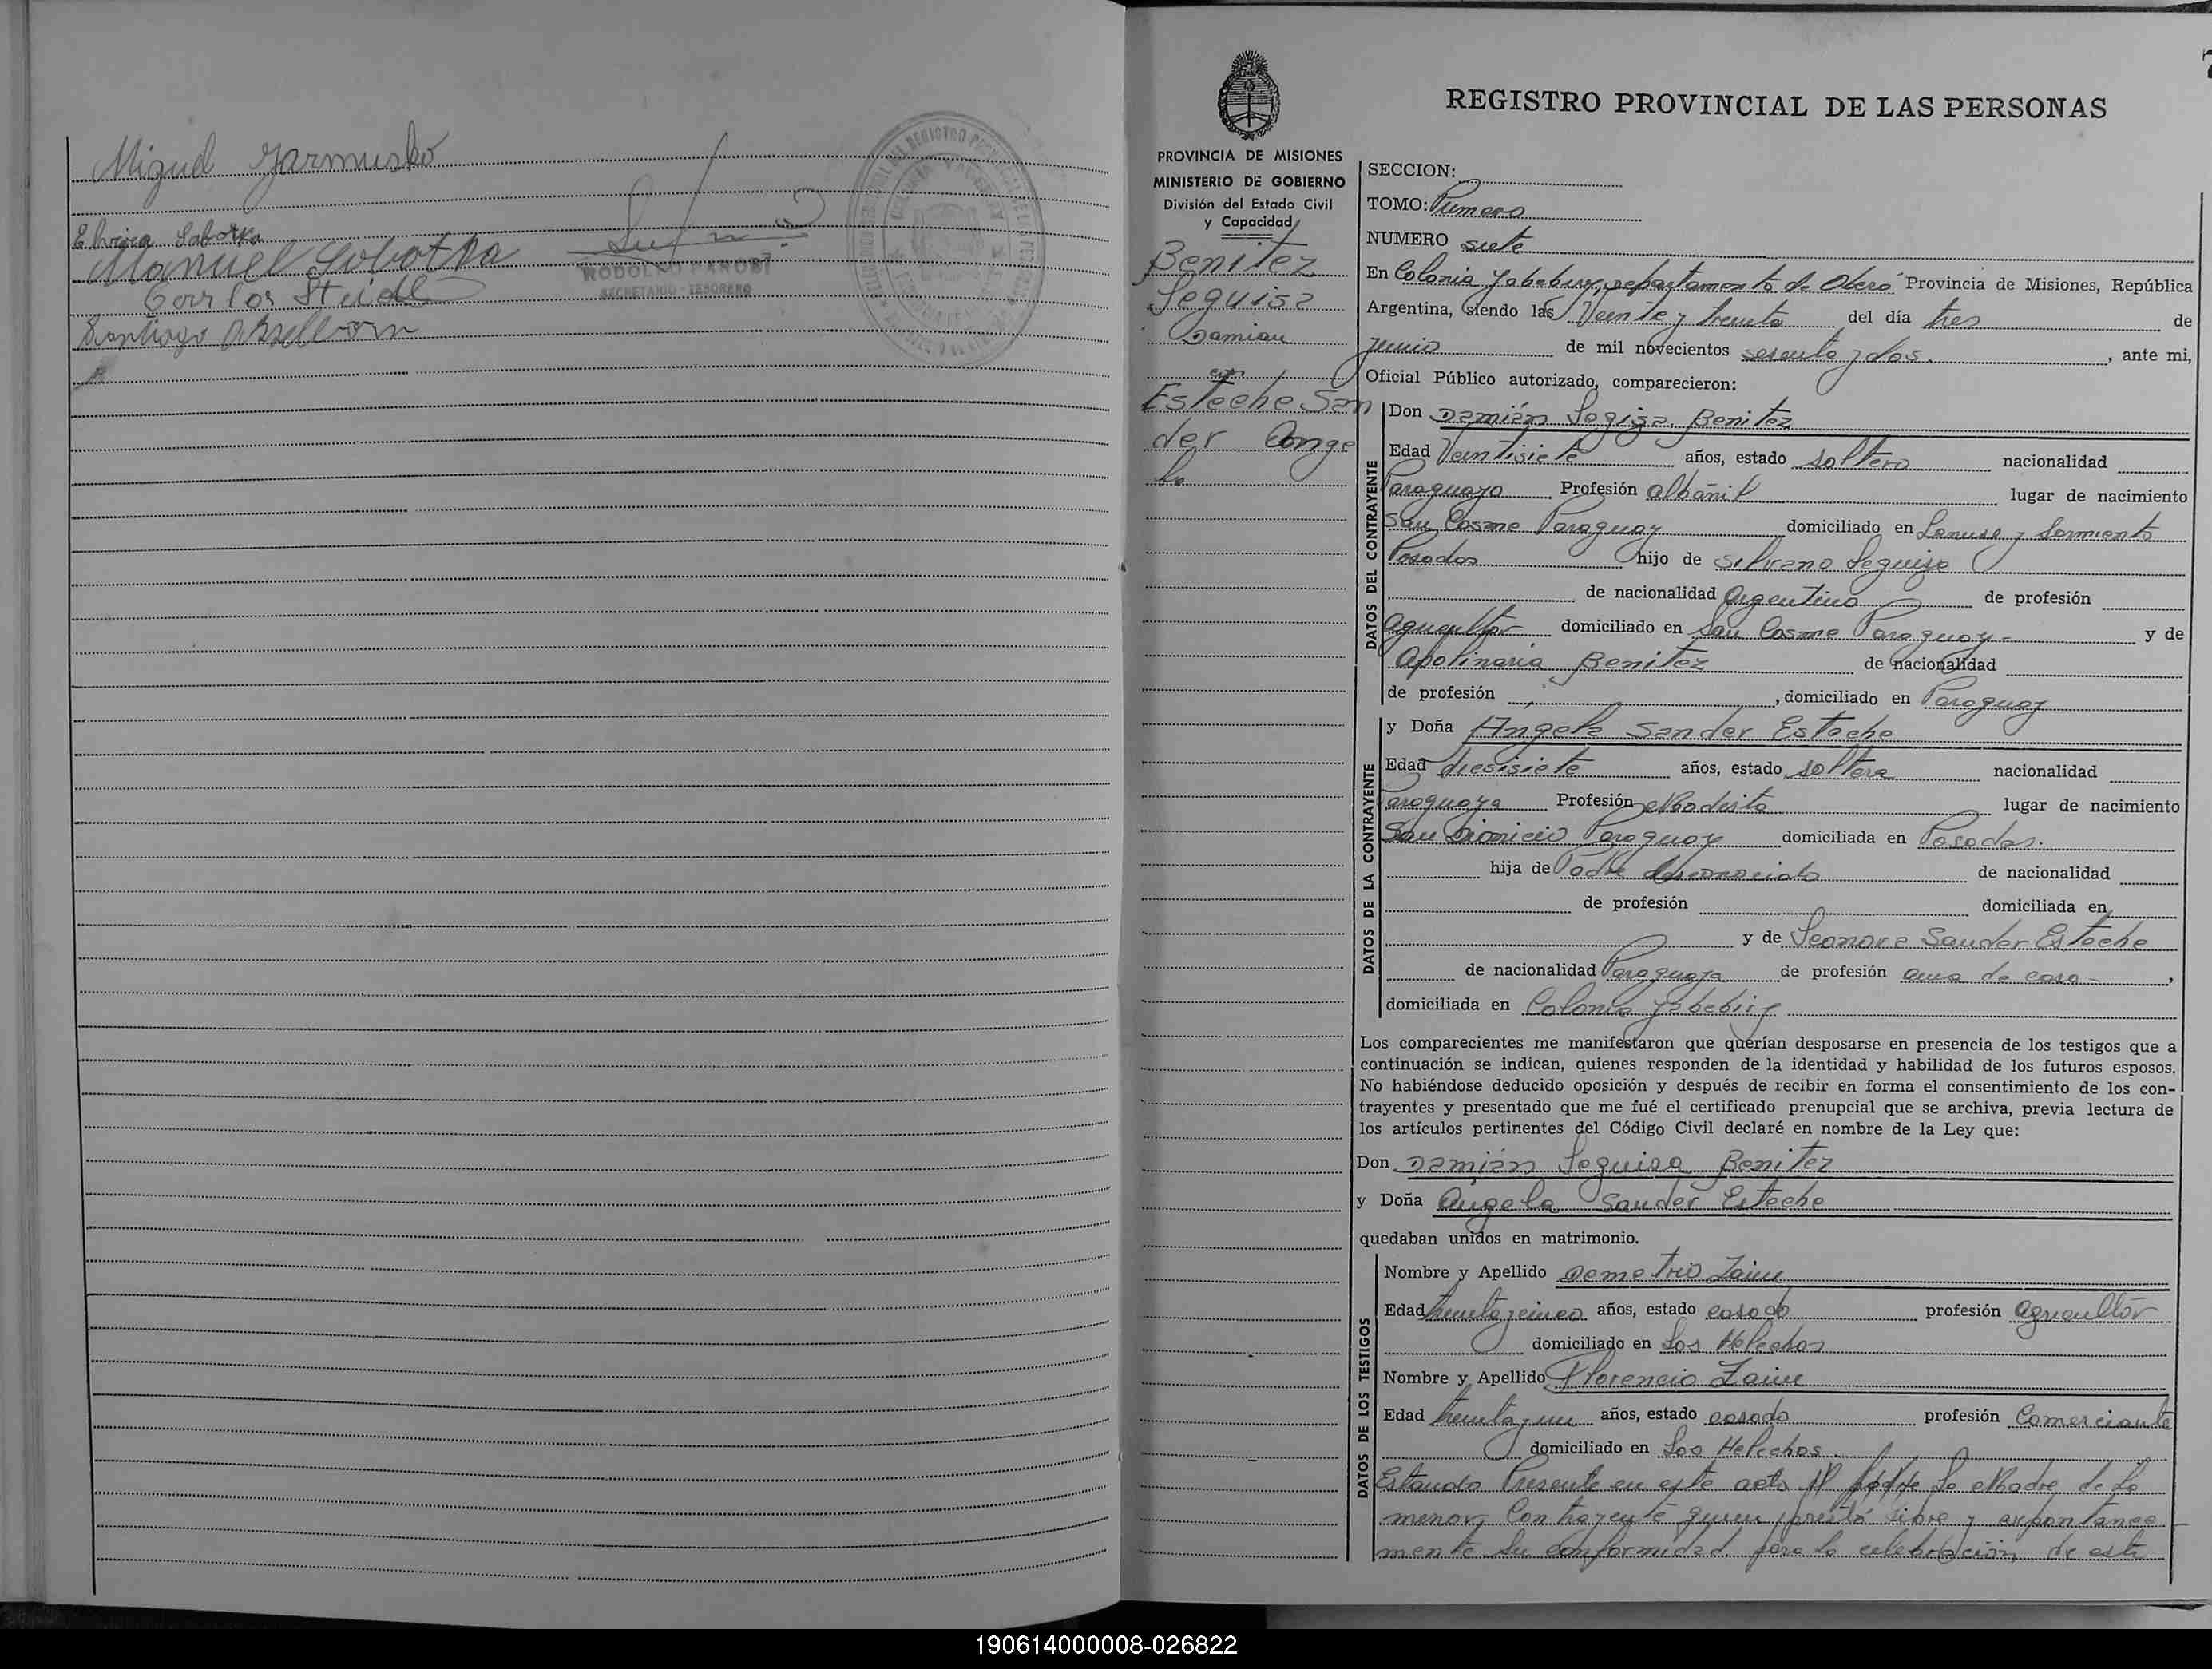 Miguel Jarmusko
Elvira Sabotka
Manuel Sobotka
Carlos Steidl
Santiago
RODOLFO PAROBI
SECRETARIO - TESORERO
7
REGISTRO PROVINCIAL DE LAS PERSONAS
PROVINCIA DE MISIONES
MINISTERIO DE GOBIERNO
División del Estado Civil
y Capacidad
Benitez
Seguisa
Damian
con
Esteche San
der Ange
la
SECCION:
TOMO: Primero
NUMERO siete
En Colonia Yabebiry, departamento de Oberá Provincia de Misiones, República
Argentina, siendo las Veinte y treinta del día tres de
junio de mil novecientos sesenta y dos. , ante mi,
Oficial Público autorizado, comparecieron:
DATOS DEL CONTRAYENTE
Don Damián Segisa Benitez
Edad Veintisiete años, estado soltero nacionalidad
Paraguaya Profesión albánil lugar de nacimiento
San Cosme Paraguay domiciliado en Lanuse y Sarmiento
Posadas hijo de Silvano Seguisa
de nacionalidad Argentino de profesión
agricultor domiciliado en San Cosme Paraguay - y de
Apolinaria Benitez de nacionalidad
de profesión , domiciliado en Paraguay
DATOS DE LA CONTRAYENTE
y Doña Angela Sander Esteche
Edad diesisiete años, estado soltera nacionalidad
Paraguaya Profesión Modista lugar de nacimiento
San Dionicio Paraguay domiciliada en Posadas.
hija de Padre desconocido de nacionalidad
de profesión domiciliada en
y de Leonora Sander Esteche
de nacionalidad Paraguaya de profesión ama de casa - ,
domiciliada en Colonia Yabebiry
Los comparecientes me manifestaron que querían desposarse en presencia de los testigos que a
continuación se indican, quienes responden de la identidad y habilidad de los futuros esposos.
No habiéndose deducido oposición y después de recibir en forma el consentimiento de los con-
trayentes y presentado que me fué el certificado prenupcial que se archiva, previa lectura de
los artículos pertinentes del Código Civil declaré en nombre de la Ley que:
Don Damián Seguisa Benitez
y Doña Angela Sander Esteche
quedaban unidos en matrimonio.
DATOS DE LOS TESTIGOS
Nombre y Apellido Demetrio Zaiuc
Edad treinta y cinco años, estado casado profesión agricultor
domiciliado en Los Helechos
Nombre y Apellido Florencio Zaiuc
Edad treinta y un años, estado casado profesión Comerciante
domiciliado en Los Helechos.
Estando Presente en este acto la Madre de la
menor Contrayente quien prestó libre y espontanea -
mente su conformidad para la celebración de este
190614000008-026822